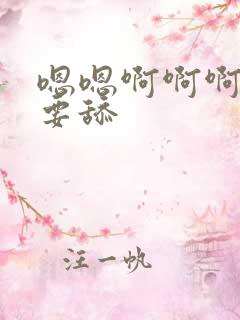 嗯嗯啊啊啊
要舔
汪一帆